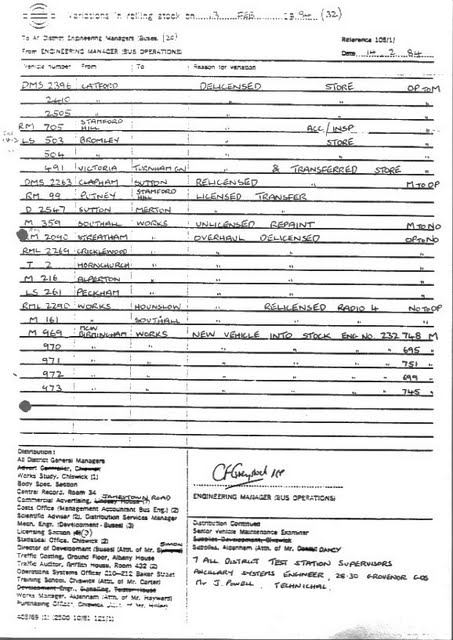 variations in rolling stock on 3 FEB 1984 (32)
To All District Engineering Managers (Buses) (20)
Reference 105/1/
From ENGINEERING MANAGER (BUS OPERATIONS)
Date 14. 2. 84
Vehicle number From To Reason for variation
DMS 2396 CATFORD DELICENSED STORE OP TO M
2410 " " " "
2505 " " " "
RM 705 STAMFORD HILL " ACC/INSP "
LS 503 BROMLEY " STORE "
504 " " " "
491 VICTORIA TURNHAM GN " & TRANSFERRED STORE "
DMS 2263 CLAPHAM SUTTON RELICENSED M TO OP
RM 99 PUTNEY STAMFORD HILL LICENSED TRANSFER
D 2547 SUTTON MERTON " "
M 359 SOUTHALL WORKS UNLICENSED REPAINT M TO NO
RM 2040 STREATHAM " OVERHAUL DELICENSED OP TO NO
RML 2269 CRICKLEWOOD " " " "
T 2 HORNCHURCH " " " "
M 216 ALPERTON " " " "
LS 261 PECKHAM " " " "
RML 2290 WORKS HOUNSLOW " RELICENSED RADIO 4 NO TO OP
M 161 " SOUTHALL " " " "
M 969 MCW BIRMINGHAM WORKS NEW VEHICLE INTO STOCK ENG NO. 232 748 M
970 " " " " " 695 "
971 " " " " " 751 "
972 " " " " " 699 "
973 " " " " " 745 "
Distribution:
All District General Managers
Advert Controller, Chiswick
Works Study, Chiswick (1)
Body Spec. Section
Central Record, Room 34
Commercial Advertising, JAMESTOWN ROAD
Costs Office (Management Accountant Bus Eng.) (2)
Scientific Adviser (2), Distribution Services Manager
Mech. Engr. (Development - Buses) (3)
Licensing Section
Statistical Office, Chiswick (2)
Director of Development (Buses) (Attn. of Mr. SIMON)
Traffic Costing, Ground Floor, Albany House
Traffic Auditor, Griffith House, Room 432 (2)
Operations Systems Officer 210-212 Baker Street
Training School, Chiswick (Attn. of Mr. Carter)
Works Manager, Aldenham (Attn. of Mr. Hayward)
Purchasing Officer, Chiswick
ENGINEERING MANAGER (BUS OPERATIONS)
Distribution Continued
Senior Vehicle Maintenance Examiner
Supplies Development, Chiswick
Supplies, Aldenham (Attn. of Mr. DANCY)
7 ALL DISTRICT TEST STATION SUPERVISORS
ANCILLARY SYSTEMS ENGINEER, 28-30 GROVENOR GDS
Mr J. POWELL. TECHNICHAL.